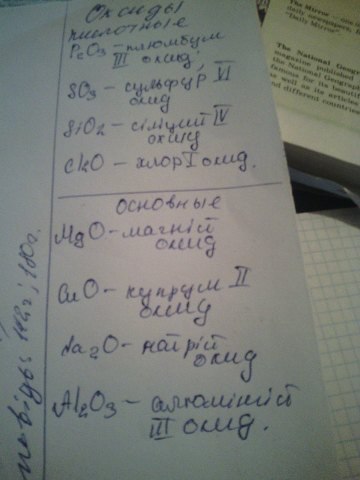 Оксиды
кислотные
P2O3 – плюмбум
III оксид;
SO3 – сульфур VI
оксид
SiO2 – сіліций IV
оксид
Cl2O – хлор I оксид.
основные
MgO – магній
оксид
CuO – купрум II
оксид
Na2O – натрій
оксид
Al2O3 – алюміній
III оксид.
The Mirror – one
daily newspapers. It
"Daily Mirror".
The National Geograp
magazine published
the National Geograp
famous for its beautiful
as well as its articles
and different countries